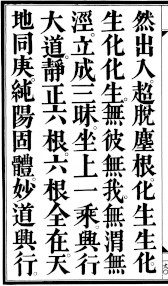 然出入。超脫塵根。化生生化
生化化生。無彼無我。無渭無
涇。立成三昧。坐上一乘興行
大道。靜正六根。六根全在。天
地同庚。純陽固體。妙道興行。